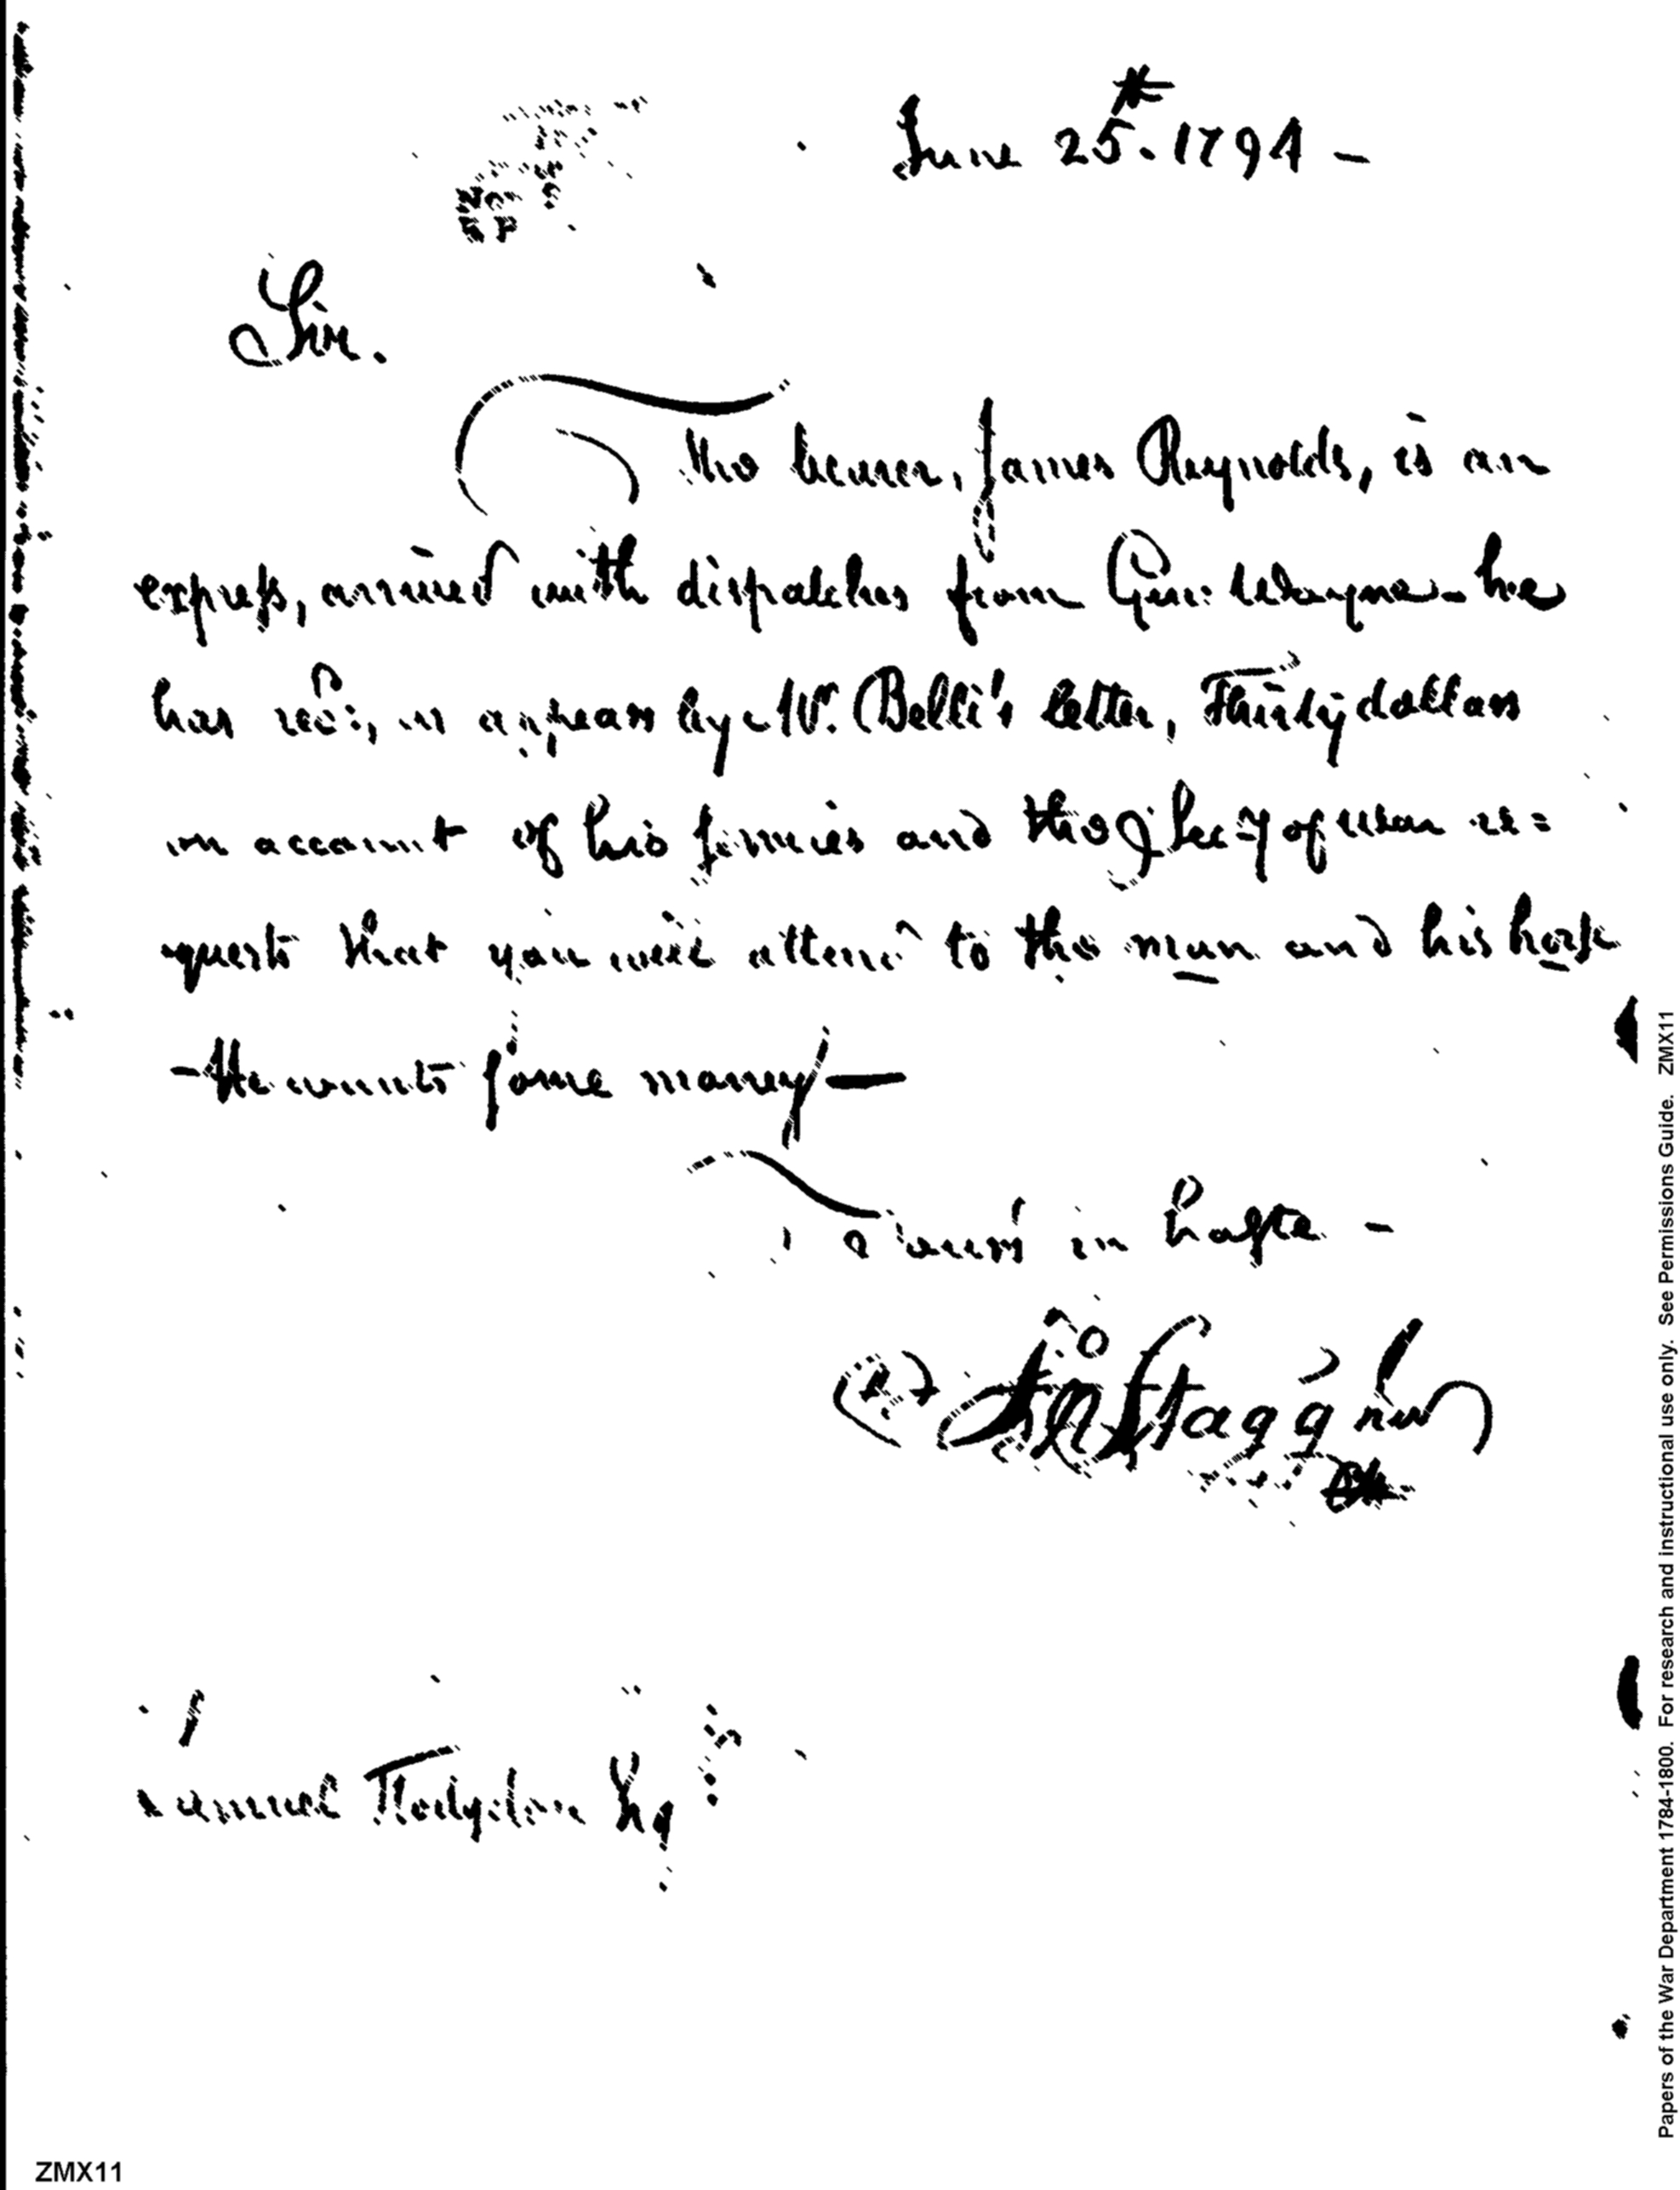 June 25th. 1794 -
Sir.
The bearer, James Reynolds, is an
express, arrived with dispatches from Gen: Wayne - he
has rec:d, as appears by Mr. Belli's letter, Thirty dollars
on account of his services and the Secy of war re=
quests that you will attend to the man and his horse
- He wants some money —
Yours in haste -
Jno Stagg Jr
Samuel Hodgdon Esq
Papers of the War Department 1784-1800. For research and instructional use only. See Permissions Guide. ZMX11
ZMX11